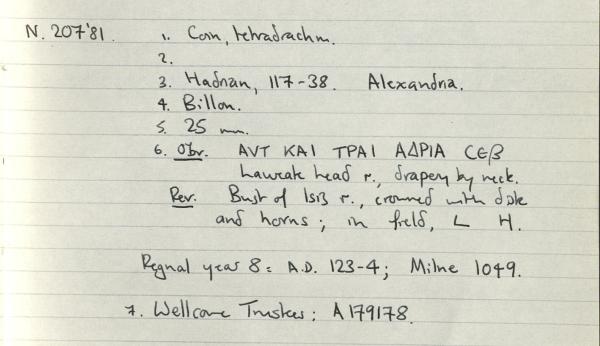 N. 207'81. 1. Coin, tetradrachm.
2.
3. Hadrian, 117-38. Alexandria.
4. Billon.
5. 25 mm.
6. Obv. ΑVΤ ΚΑΙ ΤΡΑΙ ΑΔΡΙΑ CΕβ
Laureate head r., drapery by neck.
Rev. Bust of Isis r., crowned with disk
and horns; in field, L H.
Regnal year 8 = A.D. 123-4; Milne 1049.
7. Wellcome Trustees: A179178.